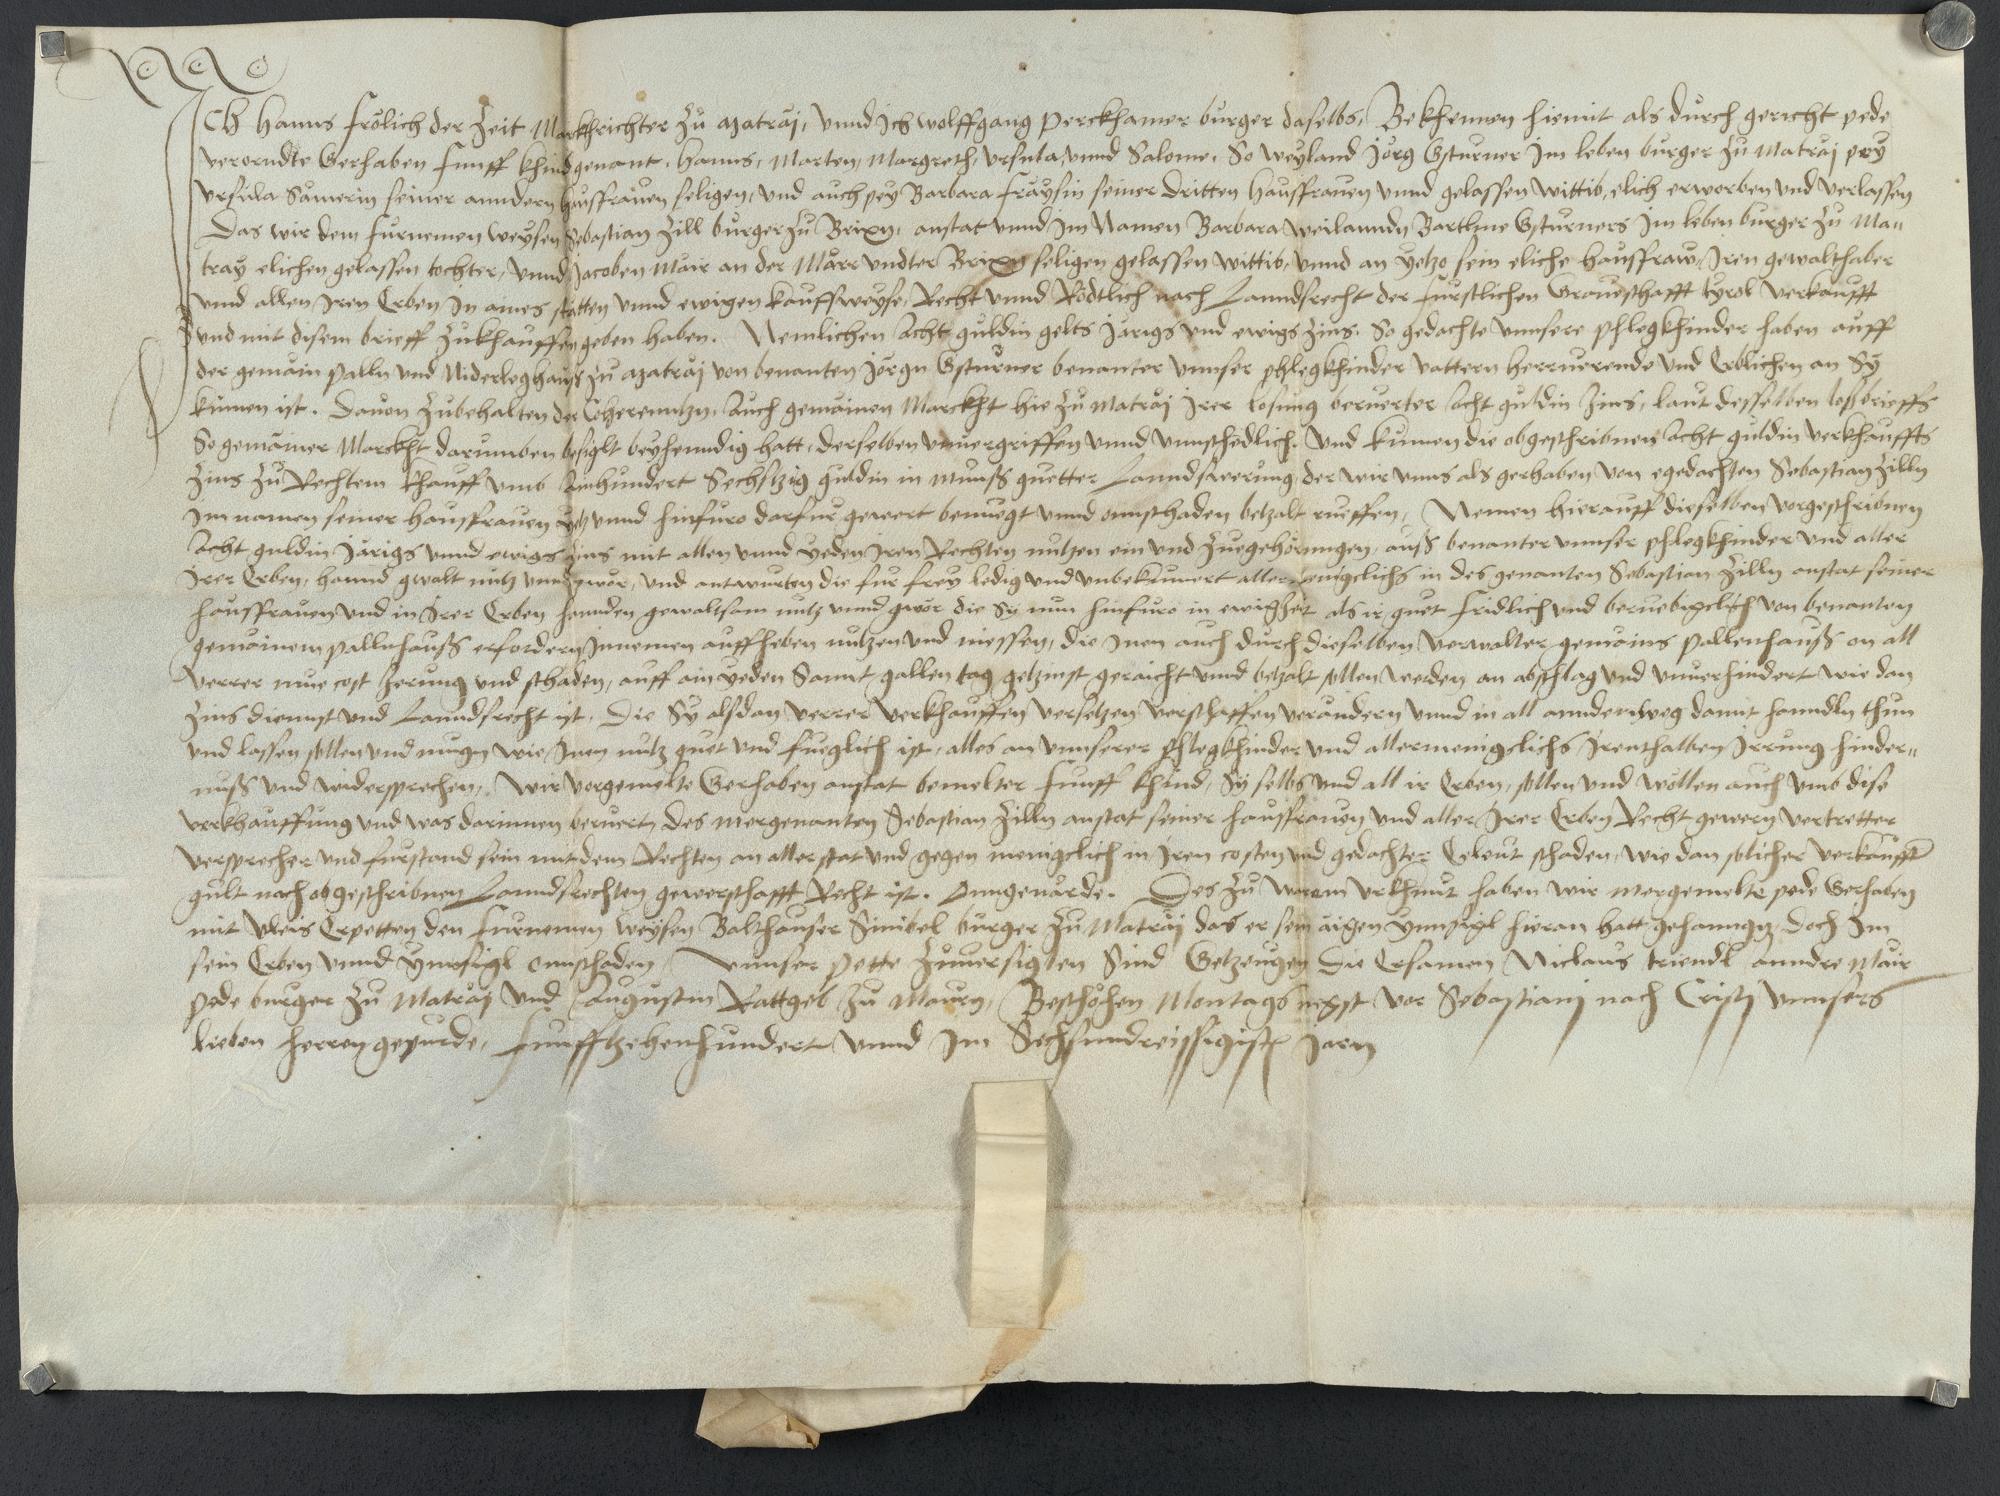 Ich Hanns Frölich der Zeit Marckhrichter zu Matraj, Unnd Ich Wolffgang Perckhamer burger daselbs, Bekhennen hiemit als durch gericht pede
verorndte Gerhaben Funff khind genant, Hanns, Marten, Margreth, Ursula, unnd Salome, So weyland Jörg Gsturner Im leben burger zu Matraj pey
Ursula Samerin seiner anndern hausfrauen seligen, und auch pey Barbara Fraysin seiner dritten hausfrauen unnd gelassen wittib, elich erworben und verlassen
Das wir dem Furnemen weysen Sebastian Zill burger zu Brixn, anstat unnd Im Namen Barbara weilanndn Bartlme Gsturners Im leben burger zu Ma-
tray elichen gelassen tochter, unnd Jacoben Mair an der Marr undter Brixn seligen gelassen wittib, unnd an yetzo sein eliche hausfraw, Iren gewalthaber
unnd allen Iren Erben In aines statten unnd ewigen kauffsweyse, Recht unnd Rödtlich nach Lanndsrecht der Furstlichen Graueschafft tyrol verkaufft
und mit disem brieff zukhauffen geben haben. Nemlichen Acht guldin gelts Järigs und ewigs zins, So gedachte unnsere phlegkhinder haben auff
der gemain palln und Niderleghaus zu Matraj von benanten Jörgn Gsturner benanter unnser phlegkhinder vattern herruerende und Erblichen an Sy
kumen ist. Dauon zubehalten der Eherenutzn, Auch gemainen Marckht hie zu Matraj Irer losung beruerter Acht guldin zins, laut desselben losbrieffs
So gemainer Marckht darumben besiglt beyhenndig hatt, derselben unuergriffen unnd unnschedlich. Und kumen die obgeschribnen Acht guldin verkhauffts
zins zu Rechtem khauff umb Ainhundert Sechszig guldin in Munss guetter Lanndswerung, der wir unns als gerhaben von egedachten Sebastian Zilln
Im namen seiner hausfrauen yetz unnd hinfuro darfur gewert benuegt unnd onnschaden betzalt rueffen, Nemen hierauff dieselben vorgeschribnen
Acht guldin Järigs unnd ewigs zins mit allen unnd yeden Iren Rechten nutzen ein und zuegehörungen, auss benanter unnser phlegkhinder und aller
Irer Erben, hannd gwalt nutz unnd gwör, und antwurten die fur frey ledig und unbekumert allermenigclichs in des genanten Sebastian Zilln anstat seiner
hausfrauen und in Irer Erben hennden gewaltsam nutz unnd gwör die Sy nun hinfuro in ewigheit als ir guet fridlich und beruebigclich von benanten
gemainem pallnhauss erfordern Innemen auffheben nutzen und niessen, die Inen auch durch dieselben verwalter gemains pallenhauss on all
verrer mue cost zerung und schaden, auff ain yeden Sannt gallen tag getzinst geraicht unnd betzalt sollen werden an abschlag und unuerhindert wie dan
zins diennst und Lanndsrecht ist, Die Sy alsdan verrer verkhauffen versetzen verschaffen verandern unnd in all annderweg damit hanndln thun
und lassen sollen und mugn wie Inen nutz guet und fueglich ist, alles an unnserer phlegkhinder und allermenigclichs Irenthalben Irrung hinder-
nuss und widersprechen, Wir vorgemelte Gerhaben anstat bemelter Funff khind, Sy selbs und all ir Erben, sollen und wöllen auch umb dise
verkhauffung und was darinnen beruert, des mergenanten Sebastian Zilln anstat seiner hausfrauen und aller Irer Erben Recht gewern vertretter
versprecher und furstand sein mit dem Rechten an aller stat und gegen menigclich in Iren costen und gedachter Eeleut schaden, wie dan solicher verkaufft
gult nach obgeschribnen Lanndsrechten gewerschafft Recht ist. Onngeuärde. Des zu warem Urkhunt haben wir mergemelte pede Gerhaben
mit vleis Erpetten den Furnemen weysen Balthauser Simibel burger zu Matraj das er sein aigen Ynnsigl hieran hatt gehanngen, doch Im
sein Erben unnd Ynnsigl onnschaden, unnser pette zuuersiglen Sind Getzeugen Die Ersamen Niclaus triendl anndre Mair
pede burger zu Matraj Und Augustin Rattgeb zu Maurn, Beschehen Montags negst vor Sebastianj nach Cristj unnsers
lieben herren gepurde, Funfftzehenhundert unnd Im Sechsunndreissigisten Jarn